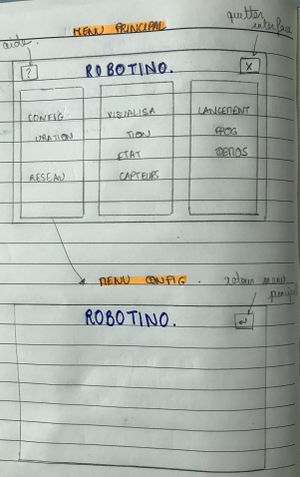 MENU PRINCIPAL
quitter
interface
aide.
?
ROBOTINO.
X
CONFIG
URATION
RESEAU
VISUALISA
TION
ETAT
CAPTEURS
LANCEMENT
PROG
DEMOS
MENU CONFIG.
retour menu
principal
ROBOTINO.
↵